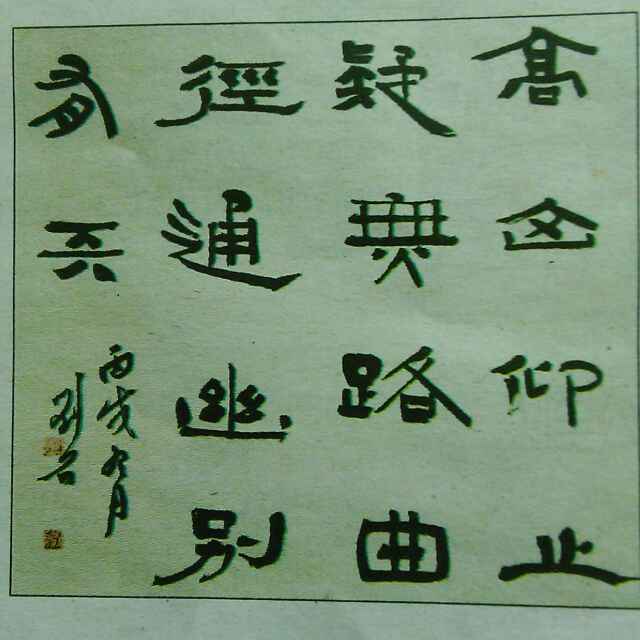 高山仰止
疑無路曲
徑通幽別
有天
丙戌九月